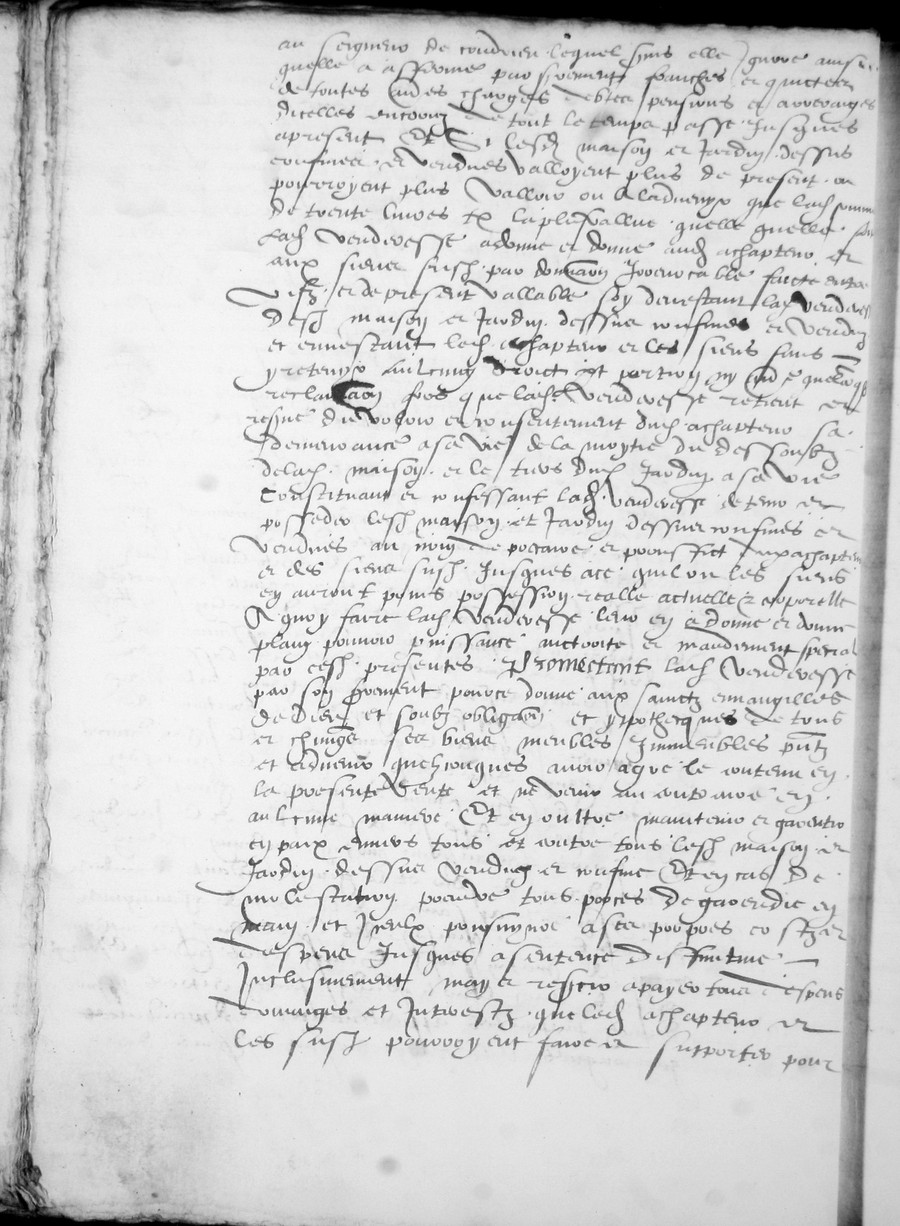 au seigneur de condrieu lequel sens elle ignore ainsi
quelle a affermé par serement franches et quictes
de toutes aultres charges debtes pensions et arreraiges
dicelles encouruz de tout le temps passé jusques
apresent Et Si lesd maison et Jardin dessus
confines et vendues valloyent plus de present ou
pourroyent plus valloir ou aladvenyr que lad somme
de trente livres tz laplusvallue quelle quelle soit
Lad venderesse adonné et donne aud achapteur et
aux siens susd par donnaon Irrevocable faicte entre
vifz et de present vallable soy devestant lad venderesse
desd maison et Jardin dessus confines et vendus
et envestant led achapteur et les siens sans
y retenyr aulcung droict et portion ny aultre quelzcque
reclamaon fors que lad venderesse retient et
reserve du voloir et consentement dud achapteur sa
demeurance asa vie de la moytie du dessoubz
delad maison et le tiers dud Jardin a sa vie
Constituant et confessant lad venderesse detenir et
posseder lesd maison et Jardin dessus confines et
vendues au nom de precaire et prouffict dud achapteur
et des siens susd Jusques ace quil ou les siens
en auront prins possession realle actuelle & corporelle
A quoy faire lad venderesse leur en a donné et donne
plain pouvoir puissance auctorite et mandement special
par cesd presentes Promectant lad venderesse
par son serement pource donné aux sainctz evangilles
de Dieu et soubz obligaon et ypothecques de tous
et chungs ses biens meubles Immeubles pntz
et advenir quelzconques avoir agre le contenu en
la presente vente et ne venir au contraire en
aulcune maniere Et en oultre maintenir et garentir
en paix envers tous et contre tous lesd maison et
Jardin dessus vendues et confine Et en cas de
molestation prendre tous proces de garendie en
main et Iceulx poursuyvre a ses propres coustz et
despens Jusques a sentence diffinitive
Inclusivement rendre et payer tous despens
domaiges et Interestz que led achapteur et
les susd pourroyent faire et supporter pour